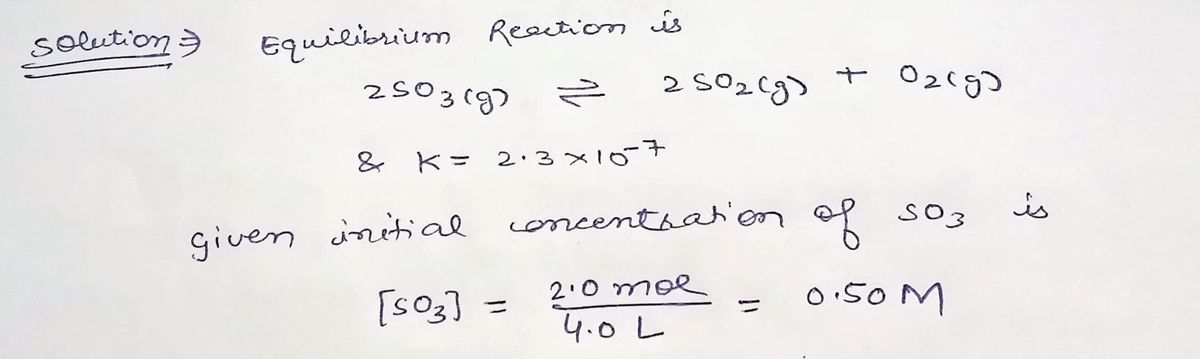 Solution ⇒ Equilibrium Reaction is
2SO₃(g) ⇌ 2SO₂(g) + O₂(g)
& K = 2.3×10⁻⁷
given initial concentration of SO₃ is
[SO₃] = 2.0 mol / 4.0 L = 0.50 M